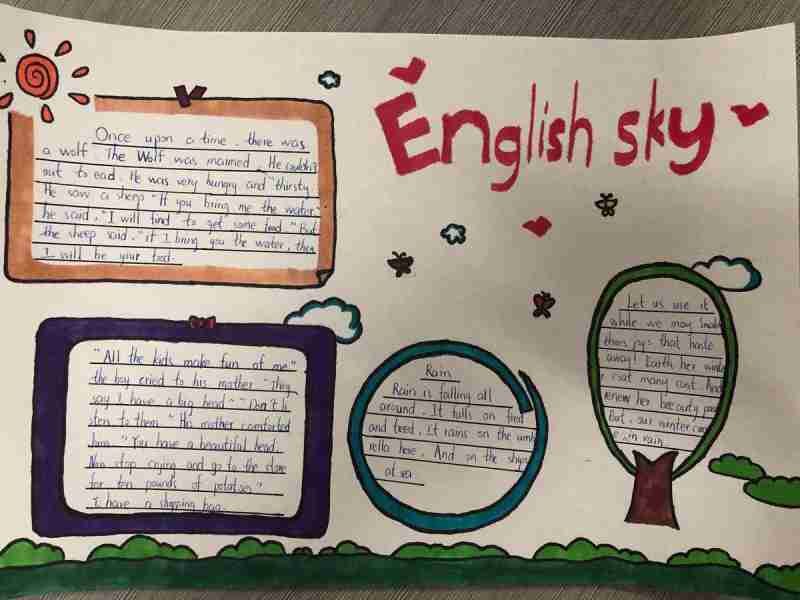 English sky
Once upon a time, there was
a wolf. The Wolf was maimed. He couldn't
out to ead. He was very hungry and thirsty
He saw a sheep "If you bring me the water"
he said, "I will find to get some food." But
the sheep said, "if I bring you the water, then
I will be your food.
"All the kids make fun of me"
the boy cried to his mother "They
say I have a big head" "Don't li
sten to them." His mother comforted
him. "You have a beautiful head.
Now stop crying and go to the store
for ten pounds of potatoes"
I have a shopping bag.
Rain
Rain is falling all
around. It falls on field
and treed. It rains on the umb
rella here. And on the ships
at sea.
Let us use it
while we may
joys that haste
away! Earth her winte
r coat many cast. And
renew her beauty past
But, our winter
in rain